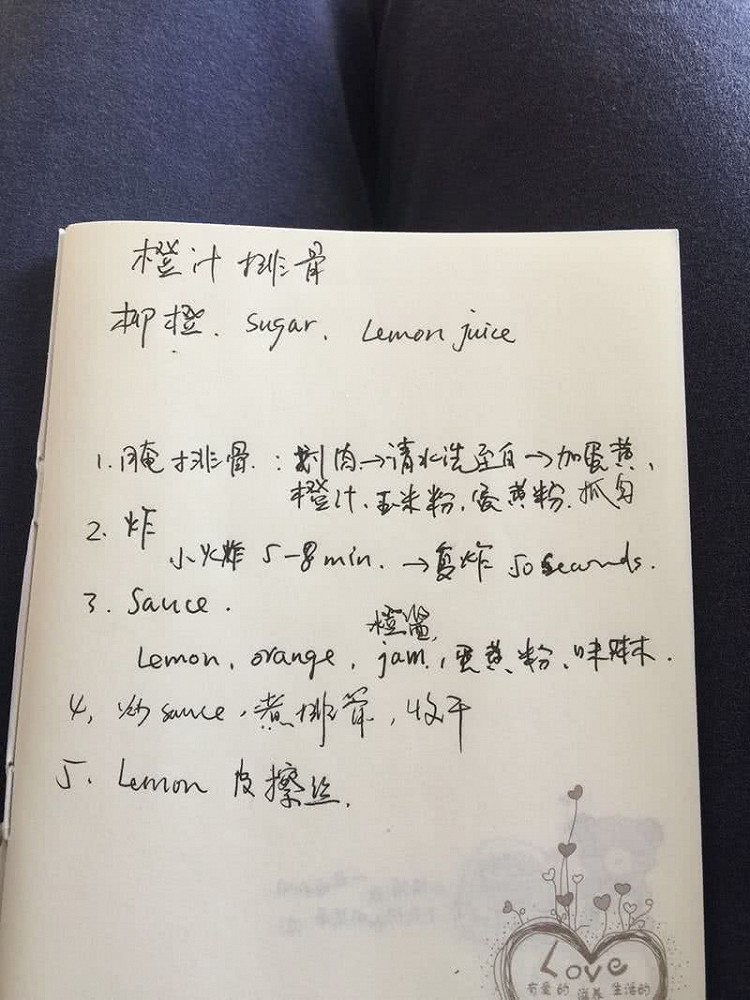 橙汁排骨
柳橙. Sugar. Lemon juice
1. 腌排骨.: 剁肉→清水洗至白→加蛋黄,
橙汁、玉米粉,蛋黄粉.抓匀
2. 炸
小火炸 5-8 min. →复炸 50 seconds.
3. Sauce.
橙酱
Lemon, orange, jam, 蛋黄粉、味琳.
4, 炒sauce,煮排骨,收干
5. Lemon 皮擦丝.
Love
有爱的 滋养 生活的